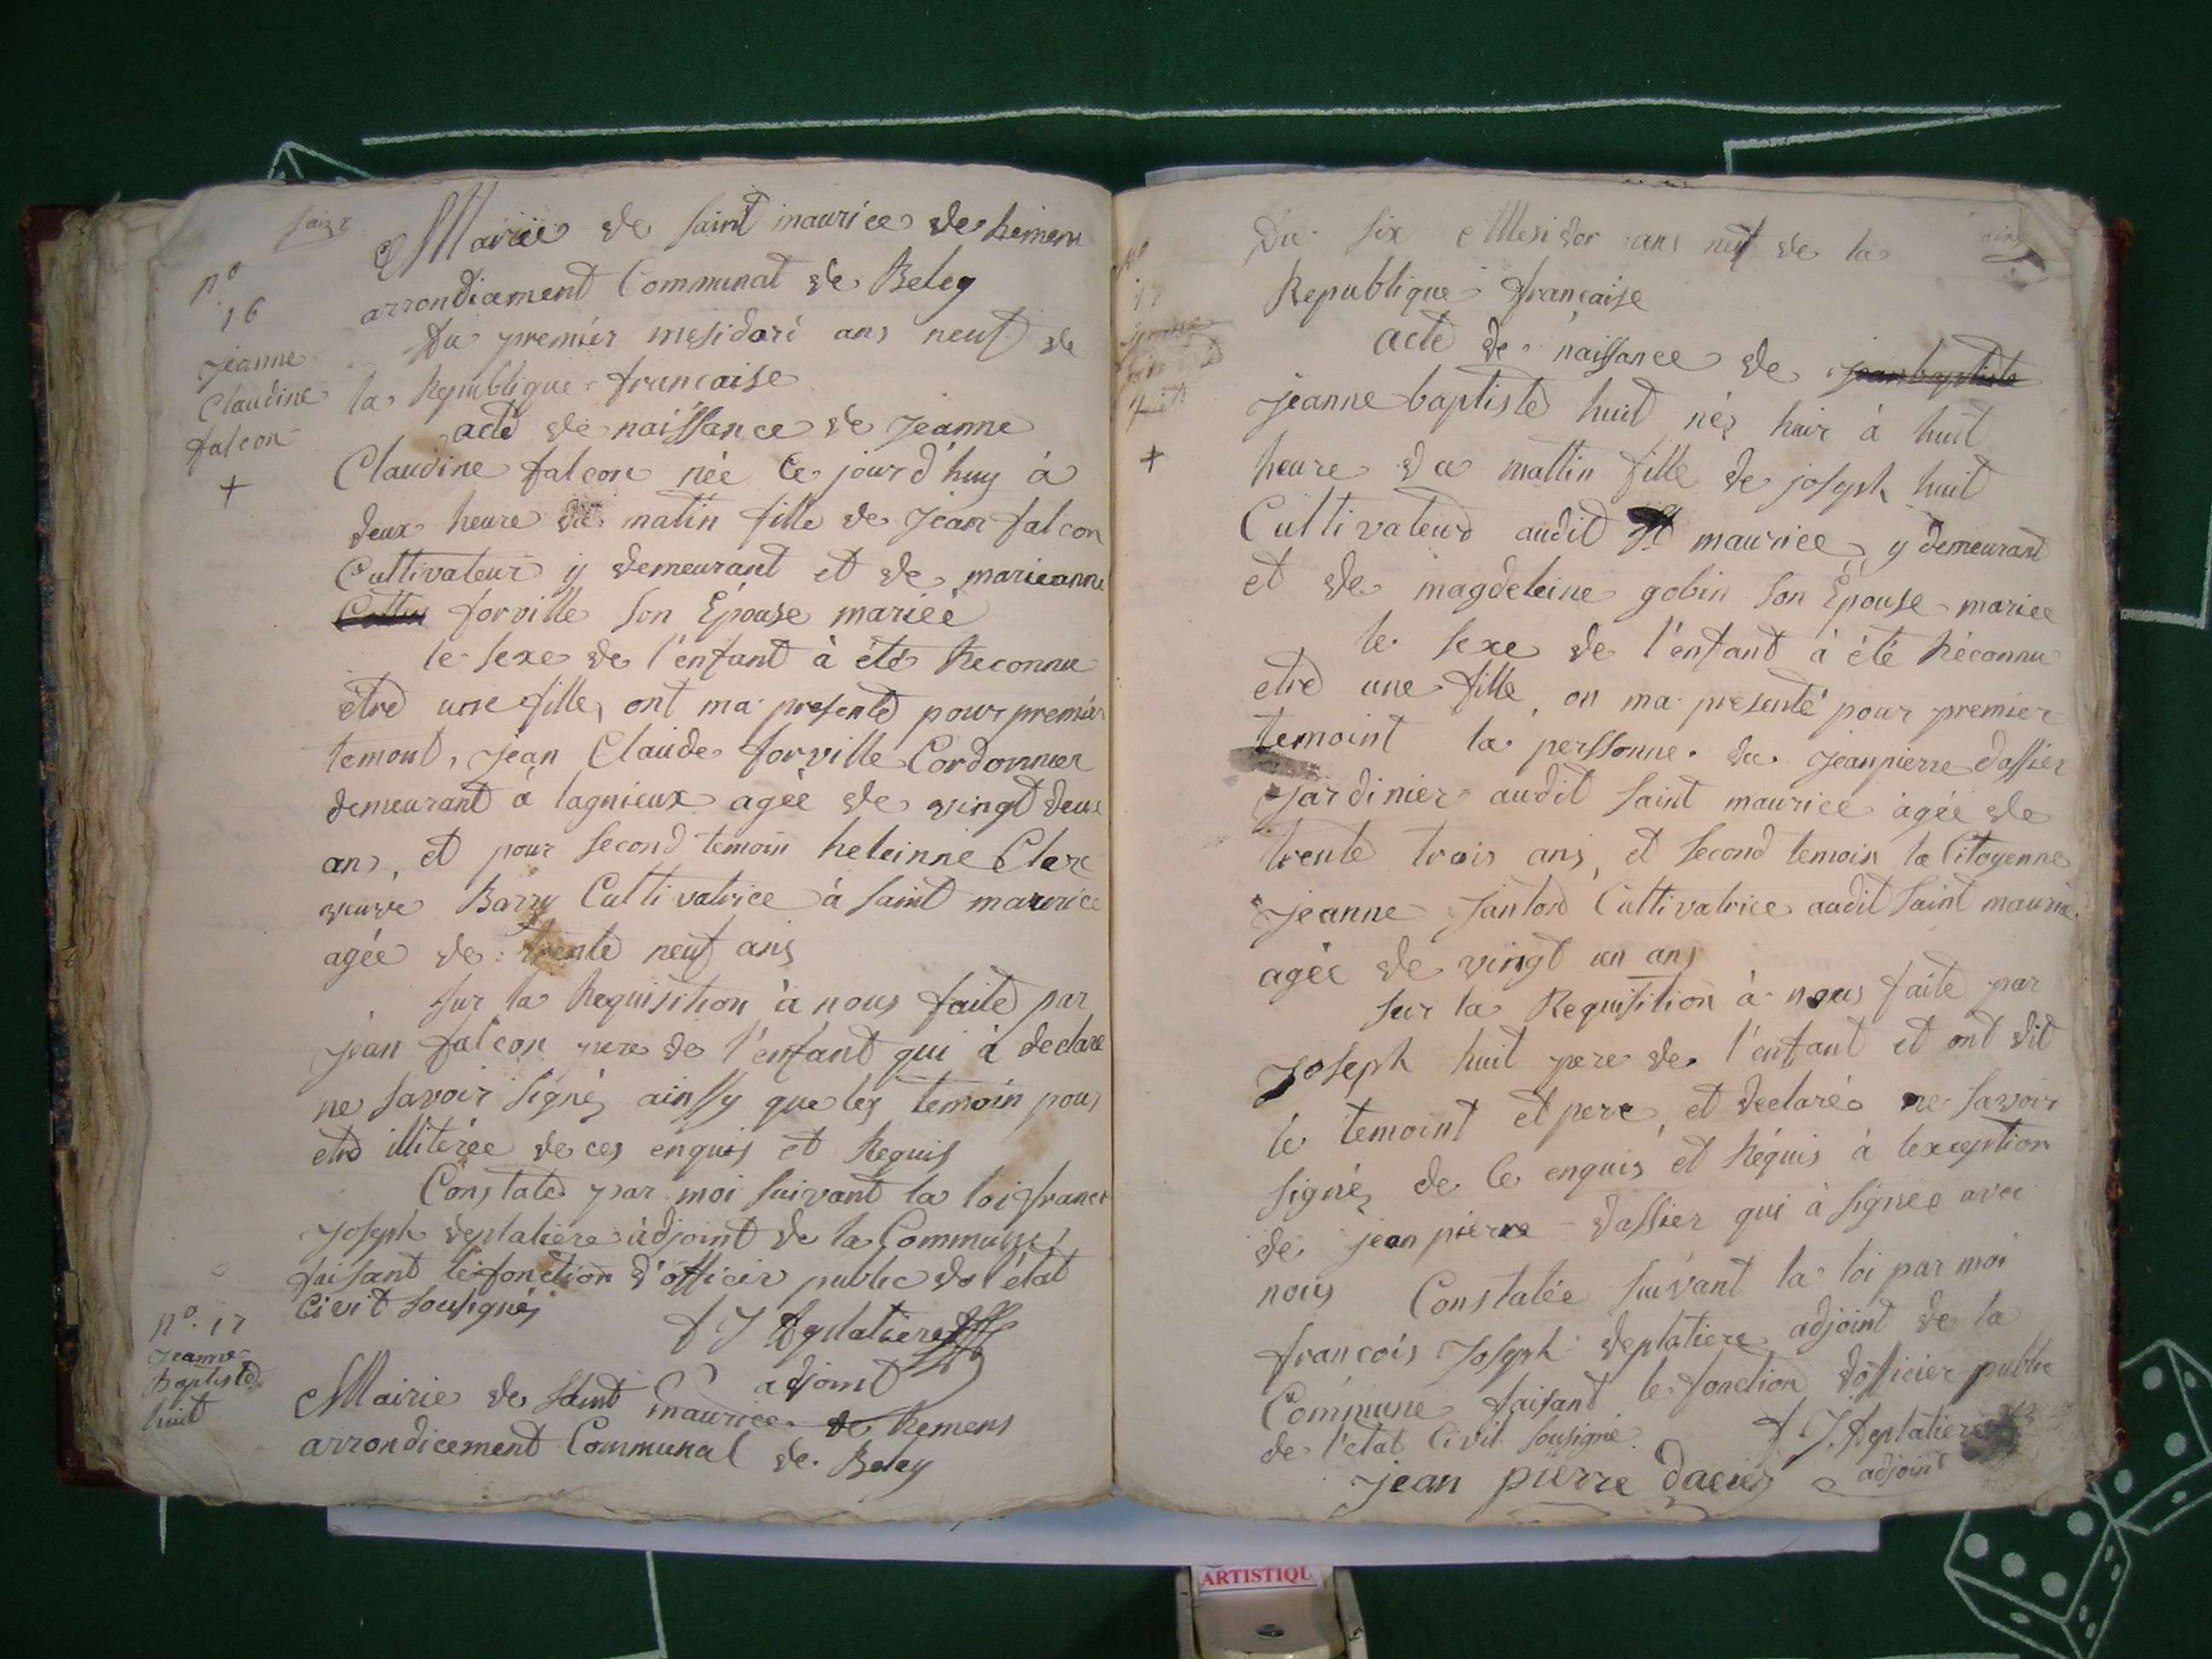 saize
Mairie de saint maurice de hemens
arrondiament Communal de Beley
nº
16
jeanne
Claudine
falcon
+
du premiér mesidoré ans neuf de
la Republique francaise
acte de naissance de jeanne
Claudine falcon née Ce jourd'huy à
deux heure du matin fille de jean falcon
Cultivateur y demeurant et de marieanne
forville son Épouse mariéé
le sexe de l'enfant à été Reconnu
etre une fille, ont ma presenté pour premier
temont, jean Claude forville Cordonnier
demeurant à lagnieux agée de vingt deux
ans, et pour second temoin heleinne Clerc
veuve Barry Cultivatrice à saint maurice
agée de trente neuf ans
sur la Requisition à nous faite par
jean falcon pere de l'enfant qui à declare
ne savoir signé, ainssy que les temoin pour
etre illiterée de ces enquis et Requis
Constaté par moi suivant la loi francois
joseph deplatiere adjoint de la Commune,
faisant le fonction d'officier public de l'état
Civil sousignés
f J Deplatiere
adjoint
nº. 17
jeanne
baptiste
huit
Mairie de saint maurice de Remens
arrondicement Communal de Beley
nº
17
Du six Mesidor ans neuf de la
Republique française
acte de naissance de jean baptiste
jeanne baptiste huit nés hair à huit
+
heure du mattin fille de joseph huit
Cultivateur audit St maurice, y demeurant
et de magdeleine gobin son Épouse mariee
le sexe de l'enfant à été Réconnu
etre une fille, on ma presenté pour premier
temoint la perssonne du jeanpierre dassier
jardinier audit saint maurice agée de
trente trois ans, et second temoin la Citoyenne
jeanne janton Cultivatrice audit saint maurice
agée de vingt un ans
sur la Requisition à nous faite par
joseph huit pere de l'enfant et ont dit
le temoint et pere, et declaré ne savoir
signé de Ce enquis et Réquis à lexception
de jean pierre dassier qui à signée avec
nous Constatée suivant la loi par moi
francois joseph deplatiere adjoint de la
Commune faisant le fonction dofficier public
de l'état Civil sousigné.
f J. Deplatiere
adjoint
jean pierre dacier
ARTISTIQU